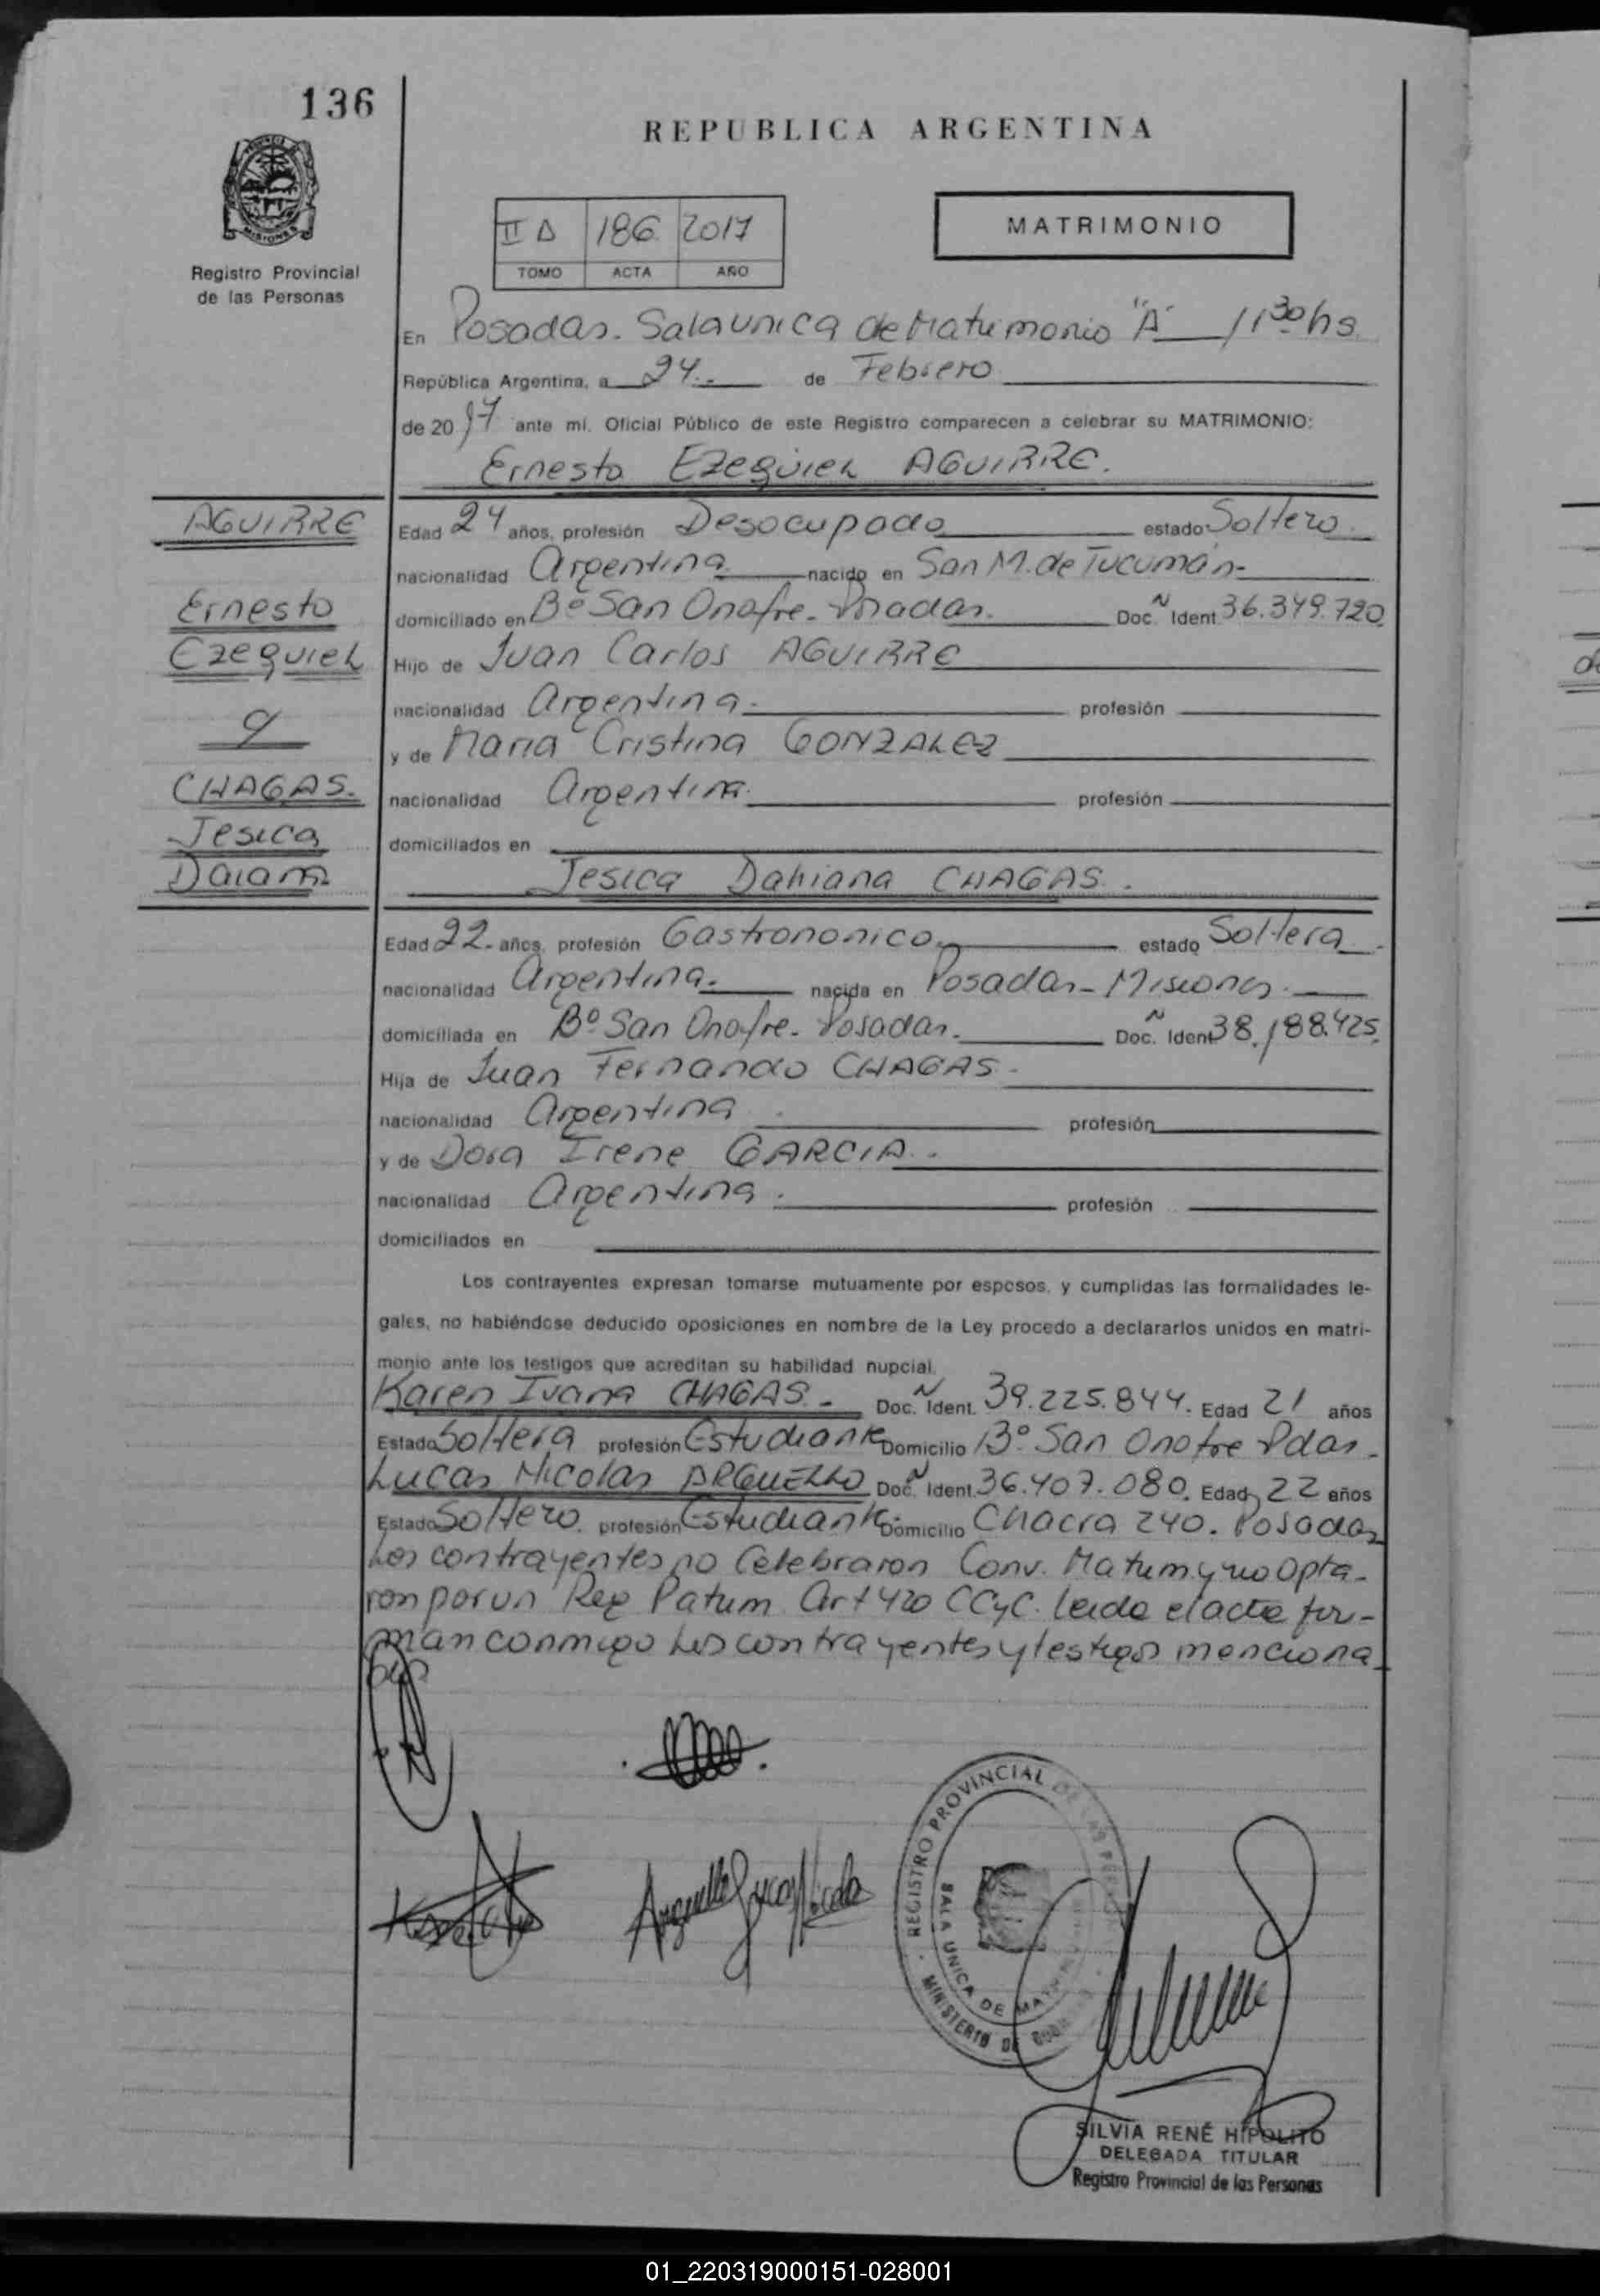 136
REPUBLICA ARGENTINA
PROVINCIA DE
MISIONES
Registro Provincial
de las Personas
II D 186 2017
TOMO ACTA AÑO
MATRIMONIO
En Posadas. Sala unica de Matrimonio "A" 11 30 hs.
República Argentina, a 24.- de Febrero
de 2017 ante mí. Oficial Público de este Registro comparecen a celebrar su MATRIMONIO:
Ernesto Ezequiel AGUIRRE.
AGUIRRE
Ernesto
Ezequiel
y
CHAGAS.
Jesica
Daiana
Edad 24 años, profesión Desocupado estado Soltero.
nacionalidad Argentina nacido en San M. de Tucumán-
domiciliado en Bº San Onofre - Posadas. Doc. N Ident 36.349.720.
Hijo de Juan Carlos AGUIRRE
nacionalidad Argentina. profesión
y de Maria Cristina GONZALEZ
nacionalidad Argentina. profesión
domiciliados en
Jesica Dahiana CHAGAS.
Edad 22.- años, profesión Gastrononico. estado Soltera.
nacionalidad Argentina. nacida en Posadas - Misiones.
domiciliada en Bº San Onofre - Posadas. Doc. N Ident 38.188.425.
Hija de Juan Fernando CHAGAS.
nacionalidad Argentina profesión
y de Dora Irene GARCIA.
nacionalidad Argentina. profesión
domiciliados en
Los contrayentes expresan tomarse mutuamente por esposos, y cumplidas las formalidades le-
gales, no habiéndose deducido oposiciones en nombre de la Ley procedo a declararlos unidos en matri-
monio ante los testigos que acreditan su habilidad nupcial.
Karen Ivana CHAGAS.- Doc. N Ident. 39.225.844. Edad 21 años
Estado Soltera profesión Estudiante Domicilio Bº San Onofre Pdas.
Lucas Nicolas ARGUELLO Doc. N Ident. 36.407.080. Edad 22 años
Estado Soltero. profesión Estudiante Domicilio Chacra 240. Posadas
Los contrayentes no Celebraron Conv. Matrim. y no Opta-
ron por un Reg Patrim Art 420 CCyC. leida el acta fir-
man conmigo los contrayentes y testigos menciona
dos
Arguello Lucas Nicolas
REGISTRO PROVINCIAL DE LAS
SALA UNICA DE
MINISTERIO DE
SILVIA RENÉ HIPOLITO
DELEGADA TITULAR
Registro Provincial de las Personas
01_220319000151-028001